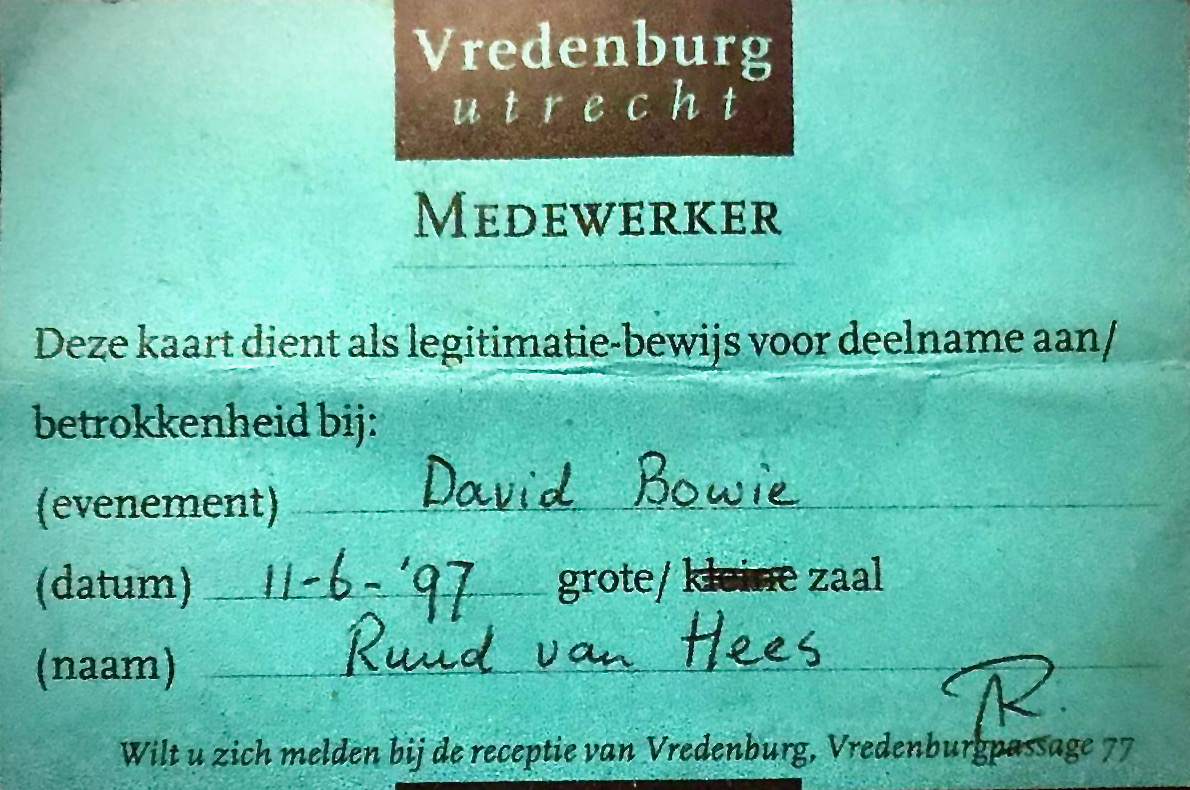 Vredenburg
utrecht
MEDEWERKER
Deze kaart dient als legitimatie-bewijs voor deelname aan/
betrokkenheid bij:
(evenement) David Bowie
(datum) 11-6-'97 grote/ kleine zaal
(naam) Ruud van Hees
R.
Wilt u zich melden bij de receptie van Vredenburg, Vredenburgpassage 77